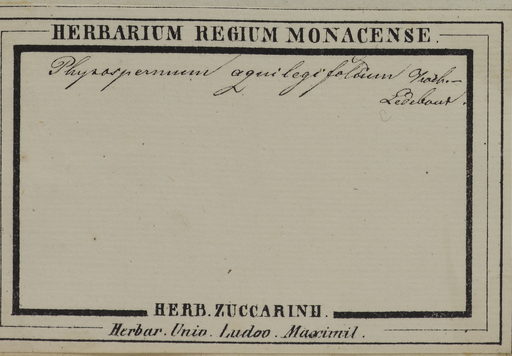 HERBARIUM REGIUM MONACENSE.
Physospermum aquilegifolium Koch.
Ledebour.
HERB. ZUCCARINII.
Herbar. Univ. Ludov. Maximil.